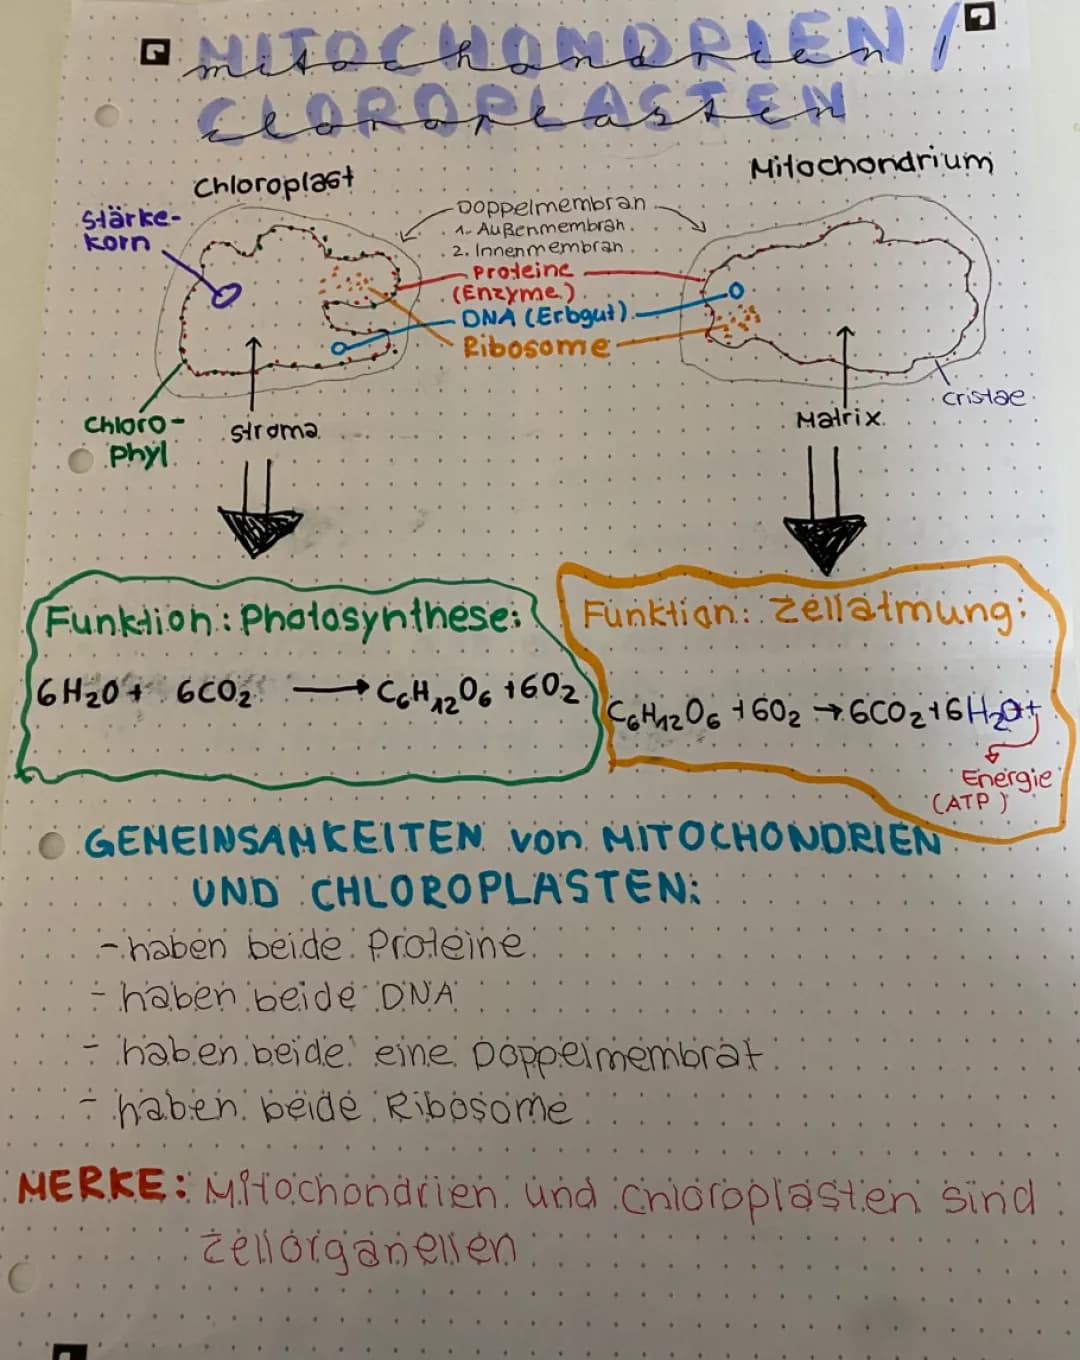 MITOCHONDRIEN/
mitochondrien
CLOROPLASTEN
cloroplasten
Chloroplast
Mitochondrium
Stärke-
korn
Doppelmembran
1. Außenmembran
2. Innenmembran
Proteine
(Enzyme)
DNA (Erbgut)
Ribosome
Chloro-
phyl
Stroma
Matrix
Cristae
Funktion: Photosynthese:
6H2O + 6CO2 → C6H12O6 + 6O2
Funktion: Zellatmung:
C6H12O6 + 6O2 → 6CO2 + 6H2O +
Energie
(ATP)
GEMEINSAMKEITEN von MITOCHONDRIEN
UND CHLOROPLASTEN:
- haben beide Proteine
- haben beide DNA
- haben beide eine Doppelmembrat
- haben beide Ribosome
MERKE: Mitochondrien und Chloroplasten sind
Zellorganellen